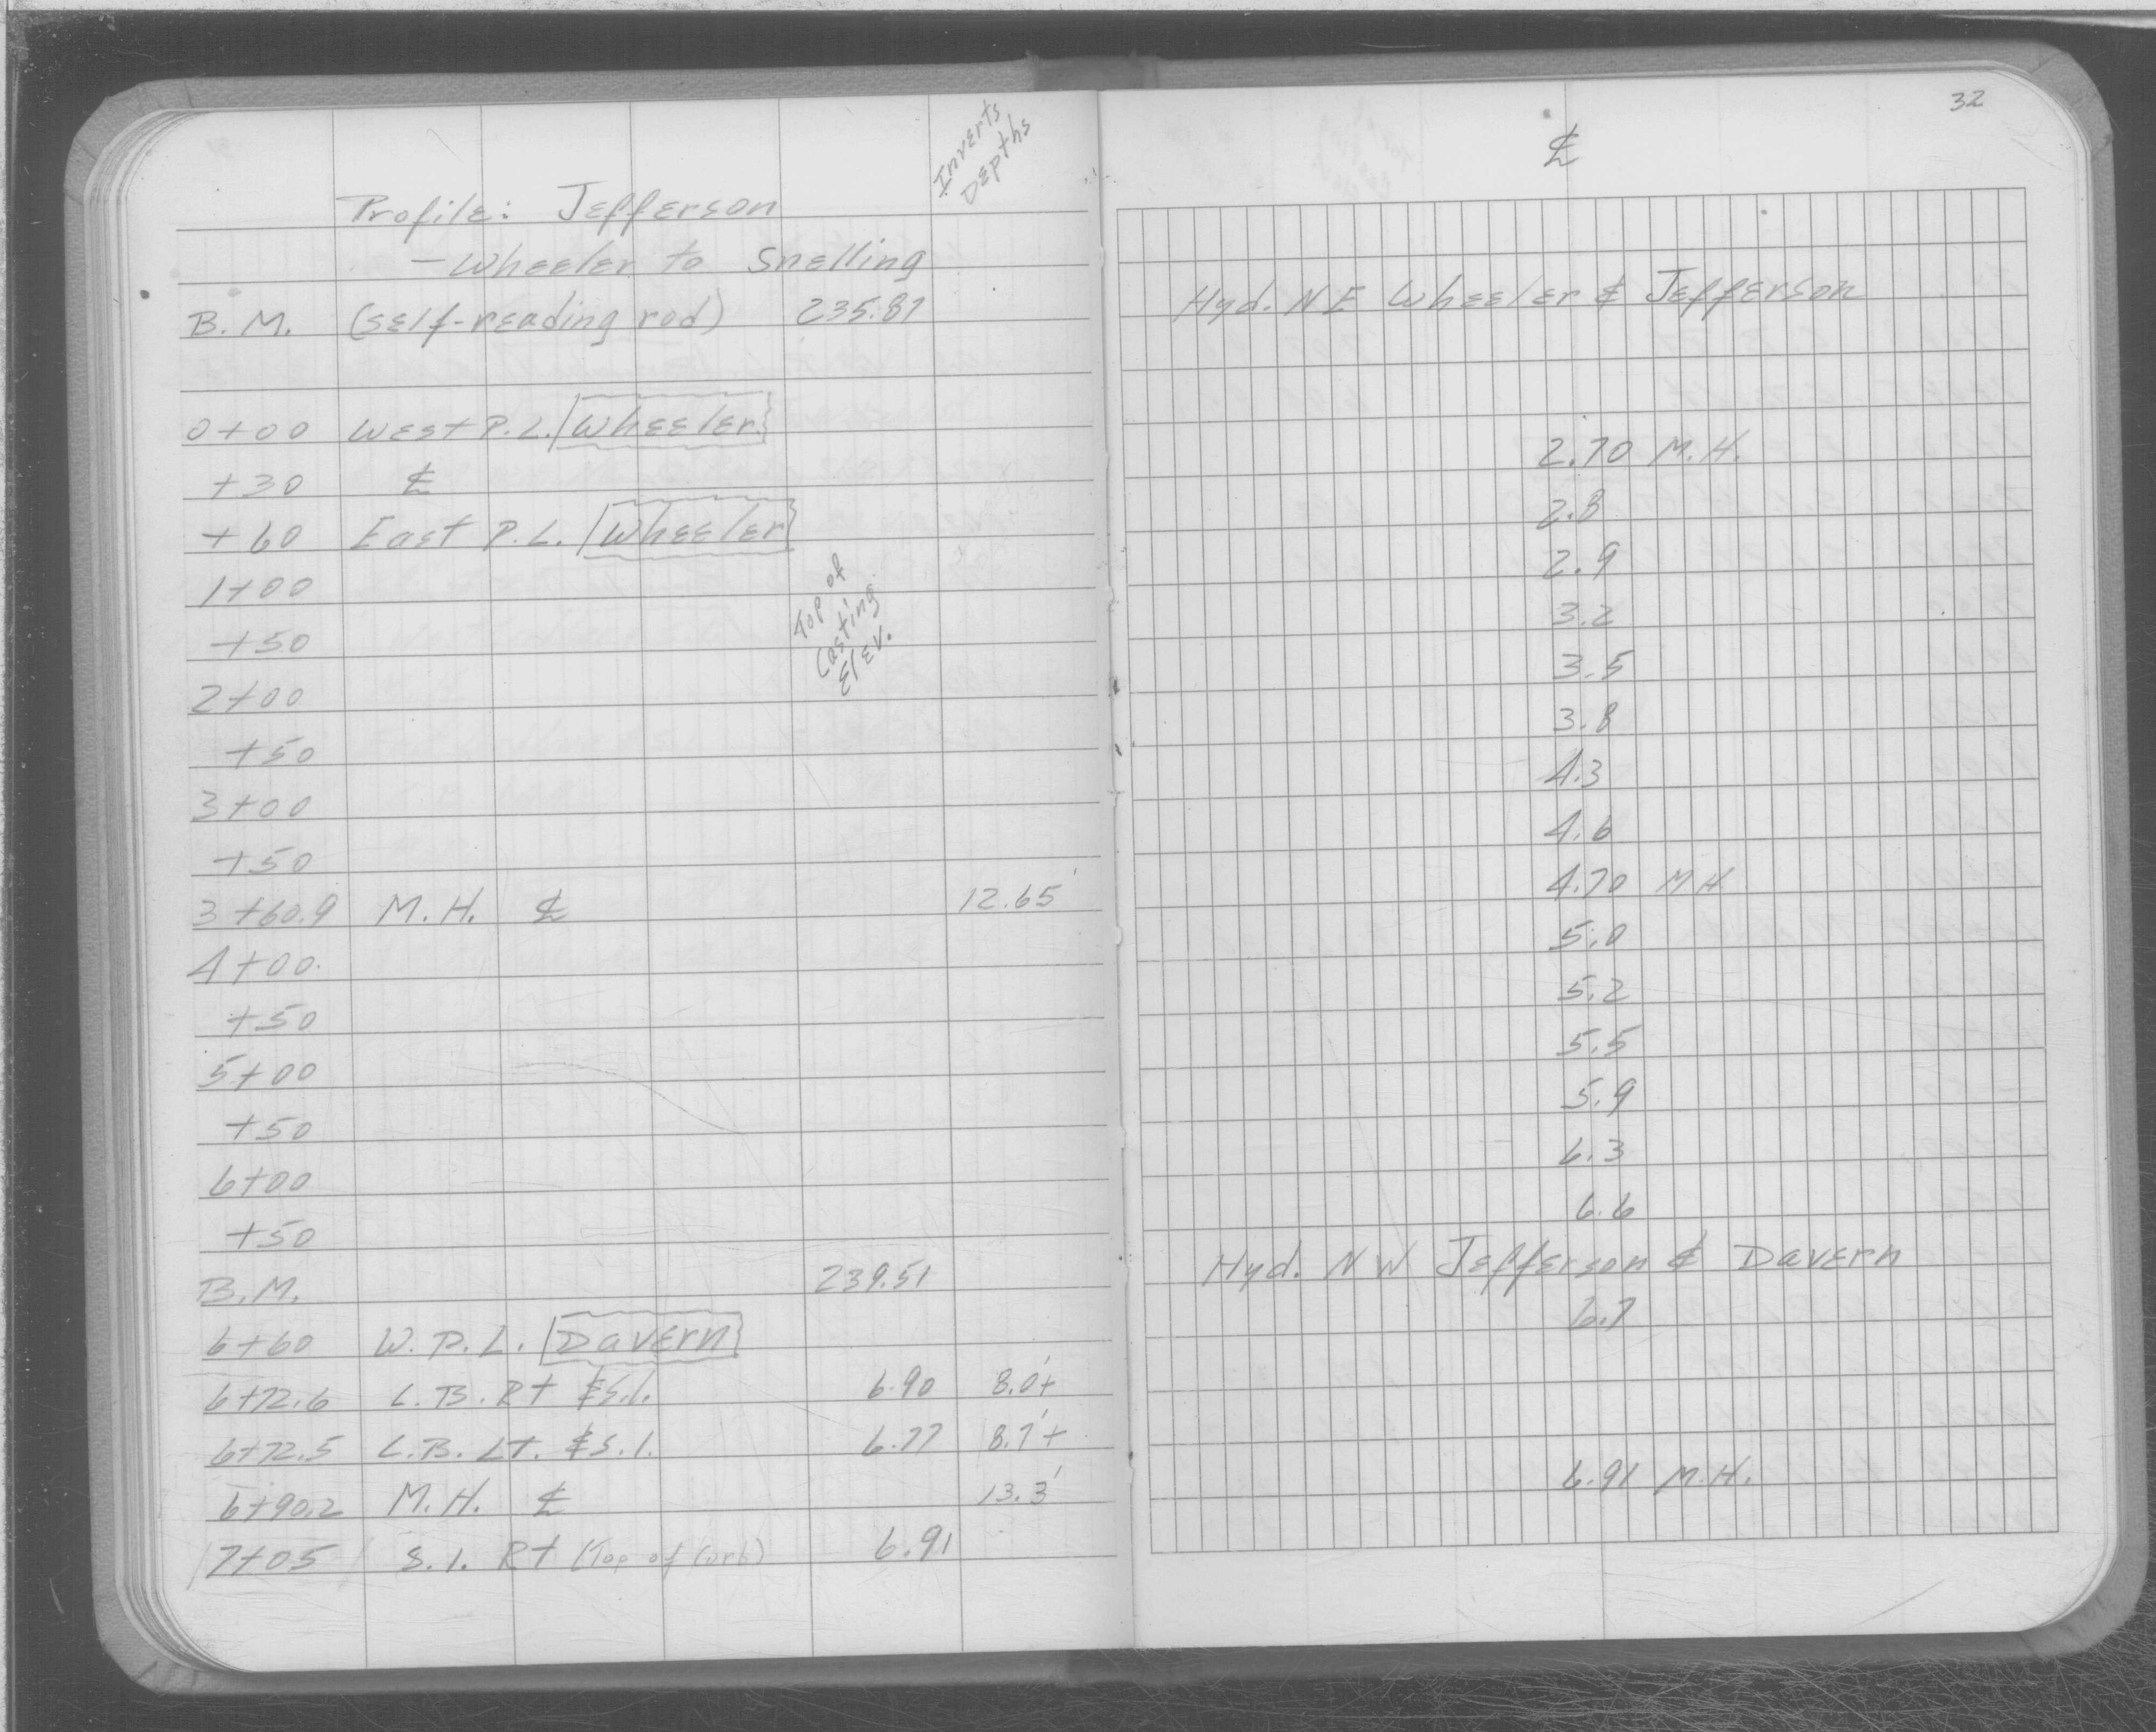 Inverts
Depths
Profile: Jefferson
- Wheeler to Snelling
B.M. (self-reading rod) 235.87
0+00 West P.L. Wheeler
+30 ℄
+60 East P.L. Wheeler
1+00
Top of
Casting
Elev.
+50
2+00
+50
3+00
+50
3+60.9 M.H. ℄ 12.65'
4+00
+50
5+00
+50
6+00
+50
B.M. 239.51
6+60 W.P.L. Davern
6+72.6 L.B. Rt & S.I. 6.90 8.0'+
6+72.5 L.B. Lt. & S.I. 6.77 8.7'+
6+90.2 M.H. ℄ 13.3'
7+05 S.I. Rt (Top of Curb) 6.91
32
℄
Hyd. NE Wheeler & Jefferson
2.70 M.H.
2.8
2.9
3.2
3.5
3.8
4.3
4.6
4.70 MH
5.0
5.2
5.5
5.9
6.3
6.6
Hyd. NW Jefferson & Davern
6.7
6.91 M.H.